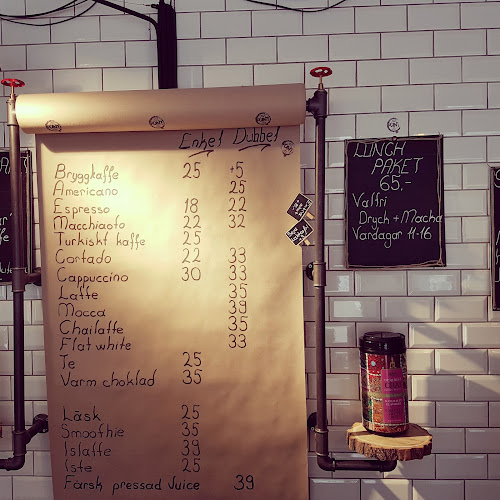 Enkel Dubbel
Bryggkaffe 25 +5
Americano 25
Espresso 18 22
Macchiaoto 22 32
Turkiskt kaffe 25
Cortado 22 33
Cappuccino 30 33
Latte 35
Mocca 39
Chailatte 35
Flat white 33
Te 25
Varm choklad 35
Läsk 25
Smoothie 35
Islatte 39
Iste 25
Färsk pressad Juice 39
LUNCH
PAKET
65.-
Valfri
Dryck + Macka
Vardagar 11-16